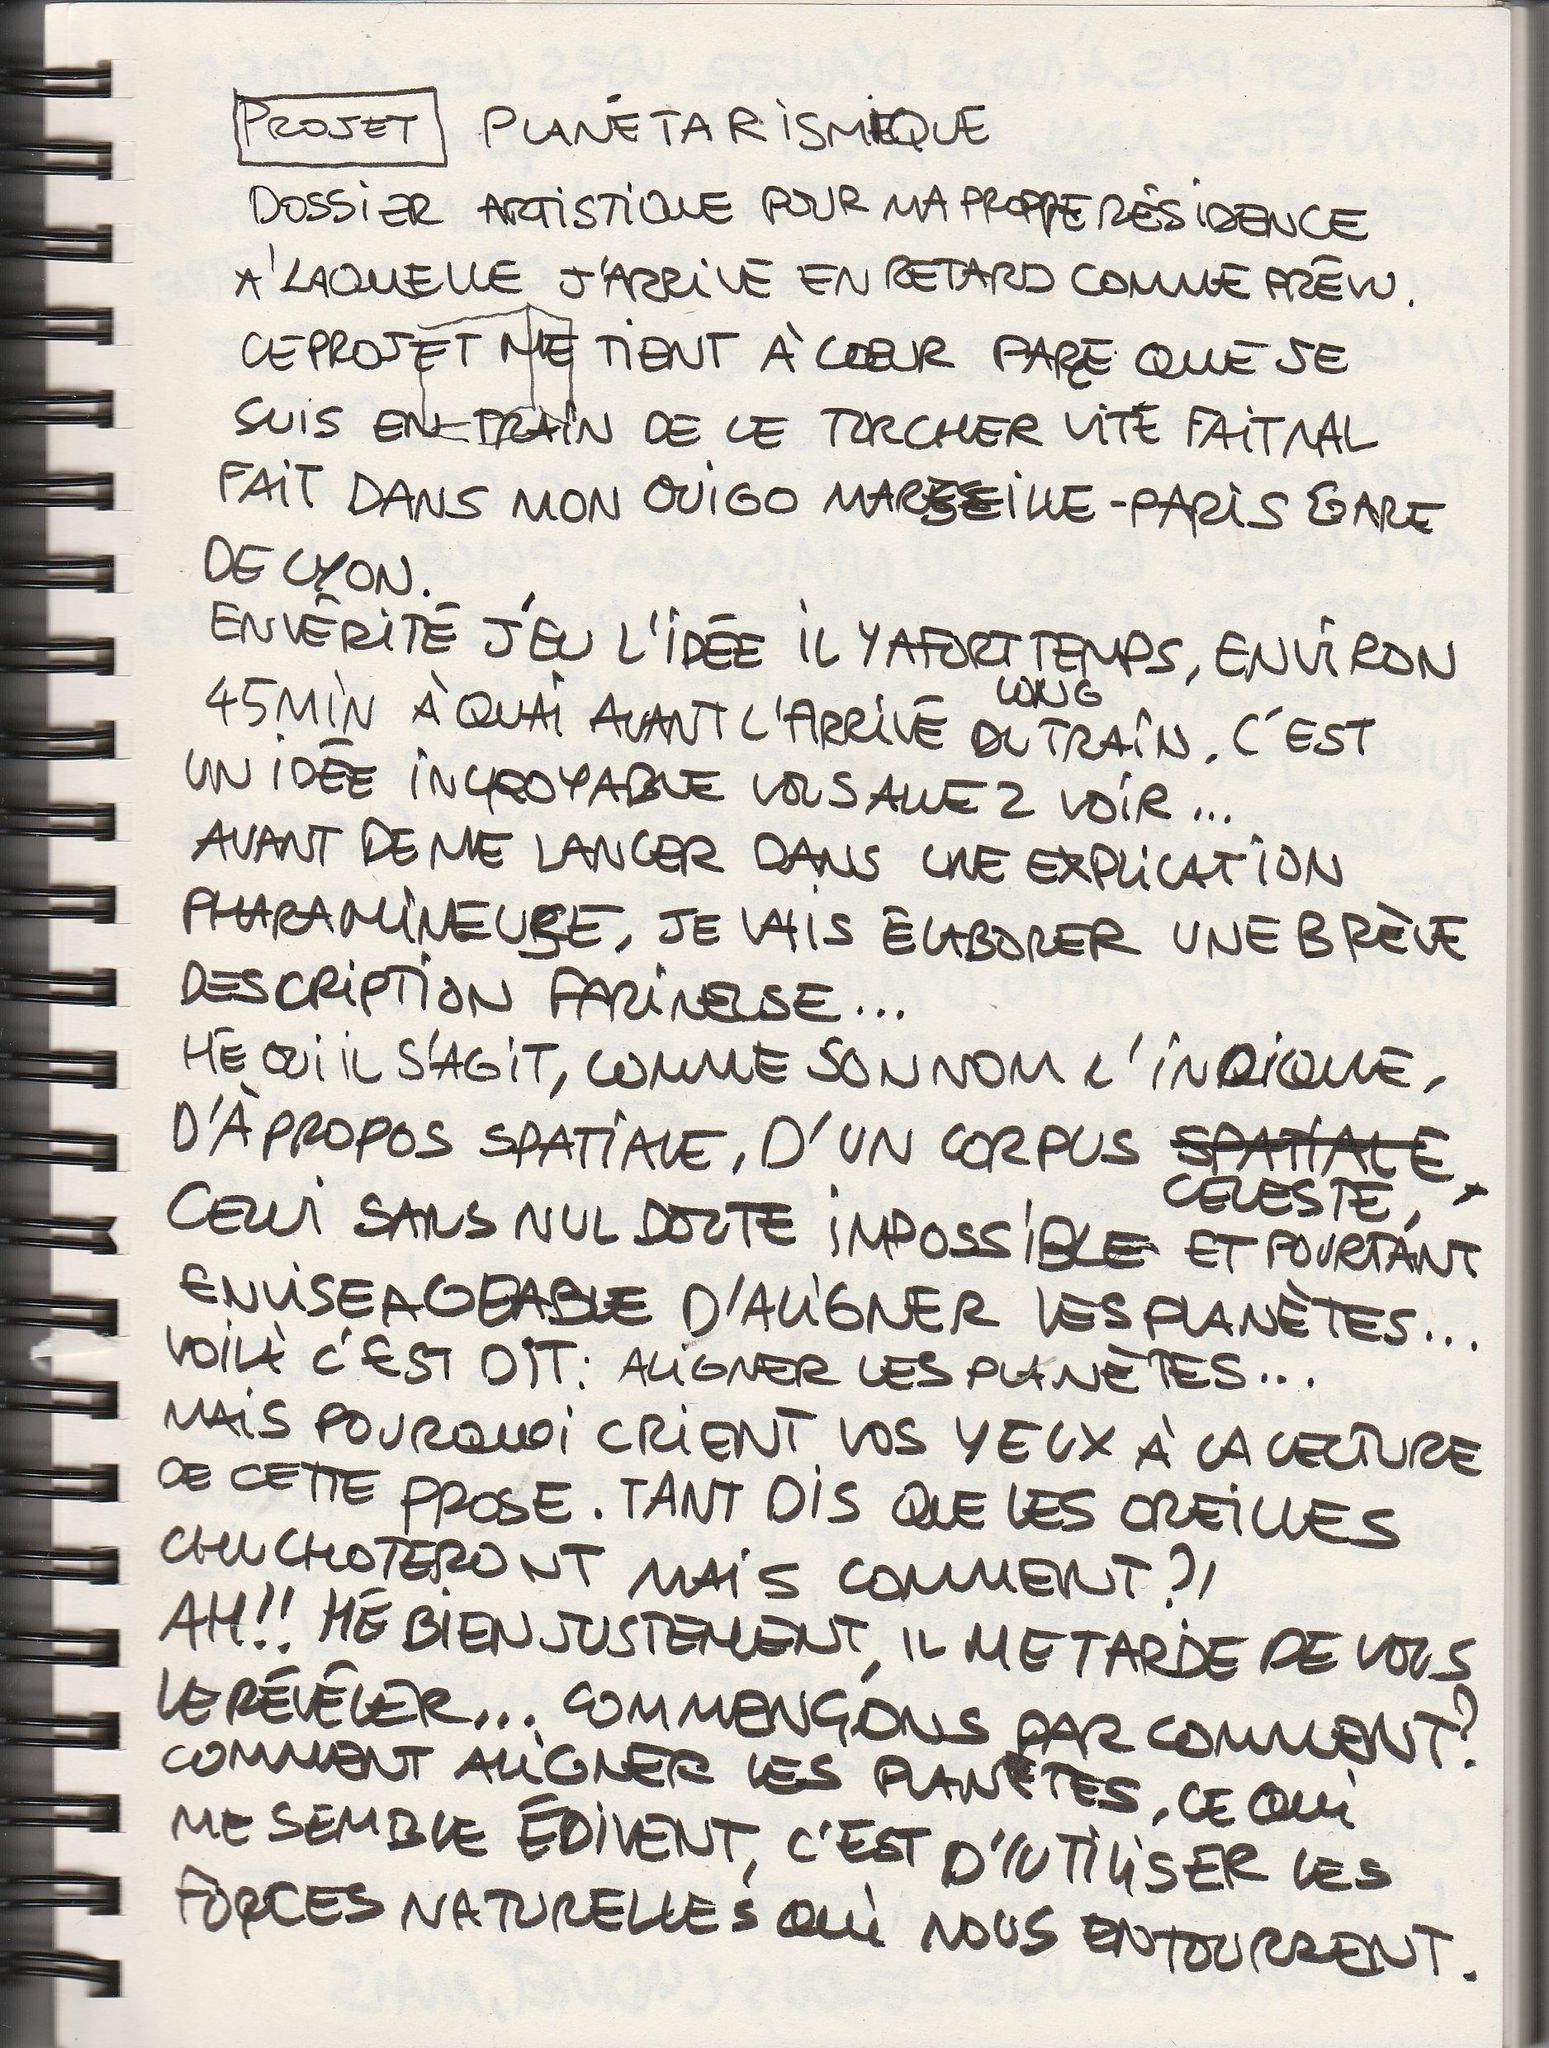 PROJET PLANÉTARISMIQUE
DOSSIER ARTISTIQUE POUR MA PROPRE RÉSIDENCE
A LAQUELLE J'ARRIVE EN RETARD COMME PRÉVU.
CE PROJET ME TIENT À CŒUR PARCE QUE JE
SUIS EN TRAIN DE LE TORCHER VITE FAIT MAL
FAIT DANS MON OUIGO MARSEILLE - PARIS GARE
DE LYON.
EN VÉRITÉ J'EU L'IDÉE IL Y A FORT TEMPS, ENVIRON
LONG
45 MIN À QUAI AVANT L'ARRIVÉ DU TRAIN. C'EST
UN IDÉE INCROYABLE VOUS ALLEZ VOIR...
AVANT DE ME LANCER DANS UNE EXPLICATION
PHARAMINEUSE, JE VAIS ÉLABORER UNE BRÈVE
DESCRIPTION FARINEUSE...
HÉ OUI IL S'AGIT, COMME SON NOM L'INDIQUE,
D'À PROPOS SPATIALE, D'UN CORPUS SPATIALE,
CÉLESTE,
CELUI SANS NUL DOUTE IMPOSSIBLE ET POURTANT
ENVISEAGEABLE D'ALIGNER LES PLANÈTES...
VOILÀ C'EST DIT: ALIGNER LES PLANÈTES...
MAIS POURQUOI CRIENT VOS YEUX À LA LECTURE
DE CETTE PROSE. TANT DIS QUE LES OREILLES
CHUCHOTERONT MAIS COMMENT?!
AH!! HÉ BIEN JUSTEMENT, IL ME TARDE DE VOUS
LE RÉVÉLER... COMMENÇONS PAR COMMENT?
COMMENT ALIGNER LES PLANÈTES, CE QUI
ME SEMBLE ÉDIVENT, C'EST D'UTILISER LES
FORCES NATURELLES QUI NOUS ENTOURRENT.